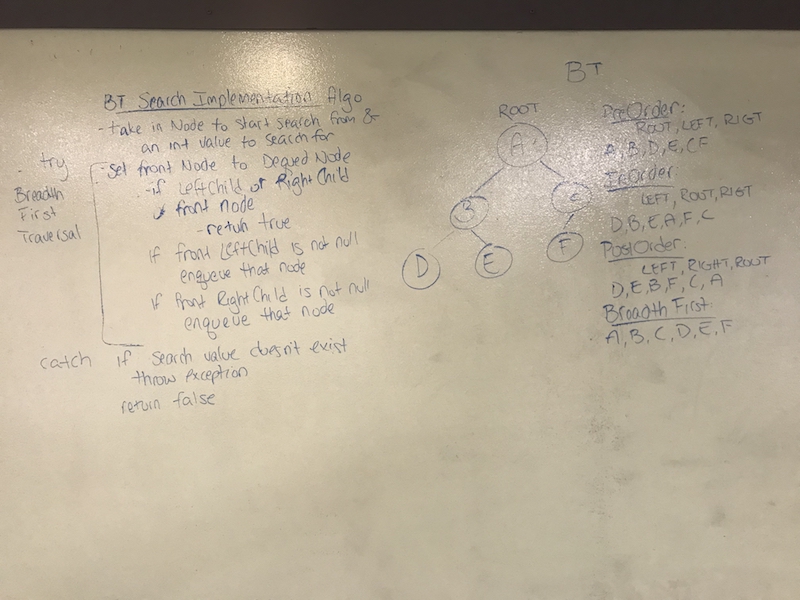 BT Search Implementation Algo
- take in Node to start search from &
an int value to search for
- try
- set front Node to Dequed Node
Breadth
First
Traversal
- if LeftChild or Right Child
front node
- return true
if front LeftChild is not null
enqueue that node
if front RightChild is not null
enqueue that node
catch if search value doesn't exist
throw exception
return false
BT
ROOT
A
B
C
D
E
F
PreOrder:
ROOT, LEFT, RIGT
A, B, D, E, CF
InOrder:
LEFT, ROOT, RIGT
D, B, E, A, F, C
PostOrder:
LEFT, RIGHT, ROOT
D, E, B, F, C, A
Breadth First:
A, B, C, D, E, F